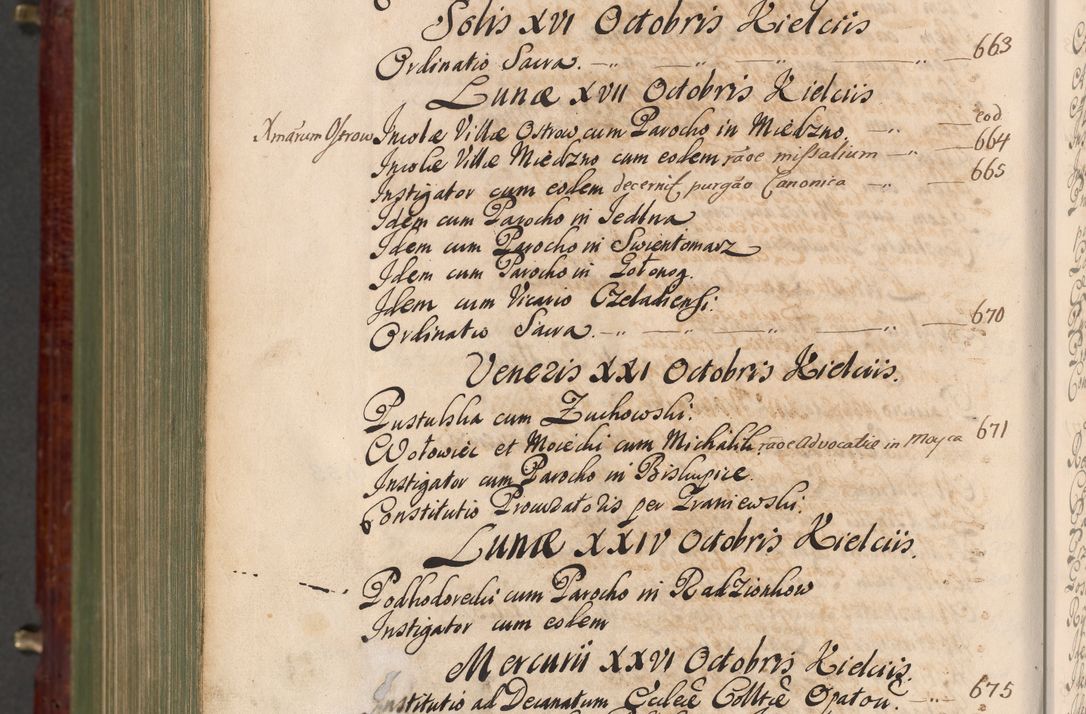 Solis XVI Octobris Kielciis
Ordinatio Sacra. 663
Lunæ XVII Octobris Kielciis
Xmarum Ostrow Incolæ Villæ Ostrow cum Parocho in Miedzno. eod
Incolæ Villæ Miedzno cum eodem raõe missalium 664
Instigator cum eodem decernit purgaõ Canonica 665
Idem cum Parocho in Jedlna
Idem cum Parocho in Swientomarz
Idem cum Parocho in Gołonog.
Idem cum Vicario Czeladiensi:
Ordinatio Sacra. 670
Veneris XXI Octobris Kielciis.
Pustulska cum Zuchowski.
Wołowiec et Moiecki cum Michalik raõe advocatiæ in Moyca 671
Instigator cum Parocho in Biskupice.
Constitutio Procuratoris per Traniewski.
Lunæ XXIV Octobris Kielciis.
Podhodorecki cum Parocho in Radzionkow
Instigator cum eodem
Mercurii XXVI Octobris Kielciis.
Institutio ad Decanatum Ecclææ Colltæ Opatou. 675